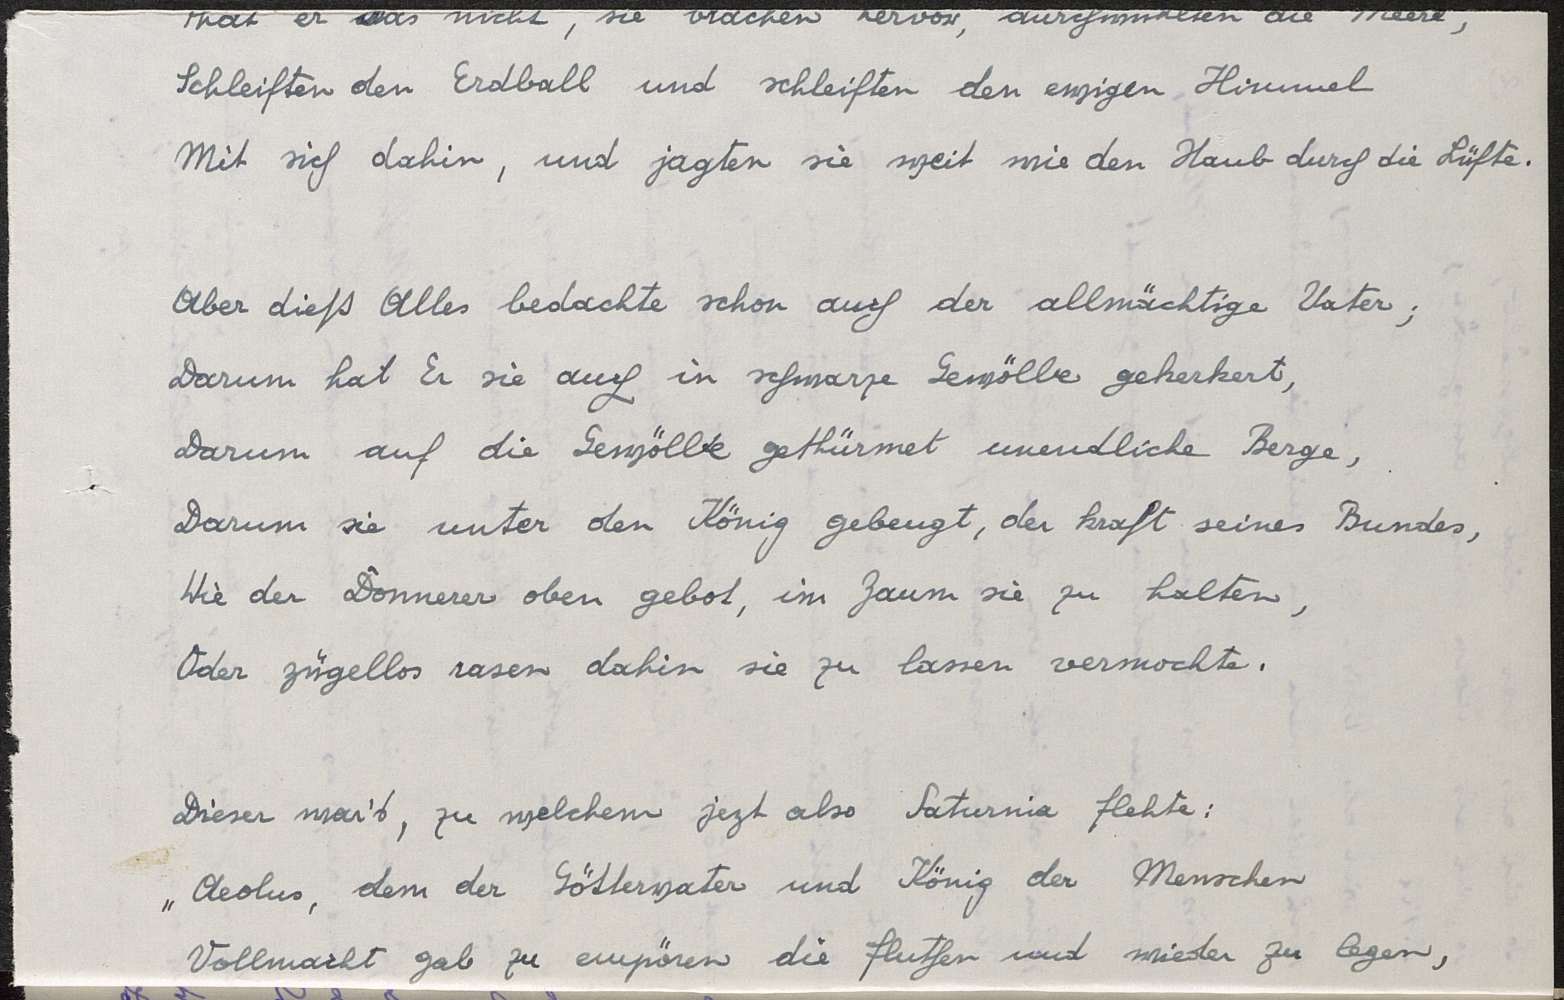 That er das nicht, sie brächen hervor, durchwühlten die Meere,
Schleiften den Erdball und schleiften den ewigen Himmel
Mit sich dahin, und jagten sie weit wie den Staub durch die Lüfte.
Aber dieß Alles bedachte schon auch der allmächtige Vater;
Darum hat Er sie auch in schwarze Gewölbe gekerkert,
Darum auf die Gewölbe gethürmet unendliche Berge,
Darum sie unter den König gebeugt, der kraft seines Bundes,
Wie der Donnerer oben gebot, im Zaum sie zu halten,
Oder zügellos rasen dahin sie zu lassen vermochte.
Dieser war's, zu welchem jezt also Saturnia flehte:
„Aeolus, dem der Göttervater und König der Menschen
Vollmacht gab zu empören die Fluthen und wieder zu legen,